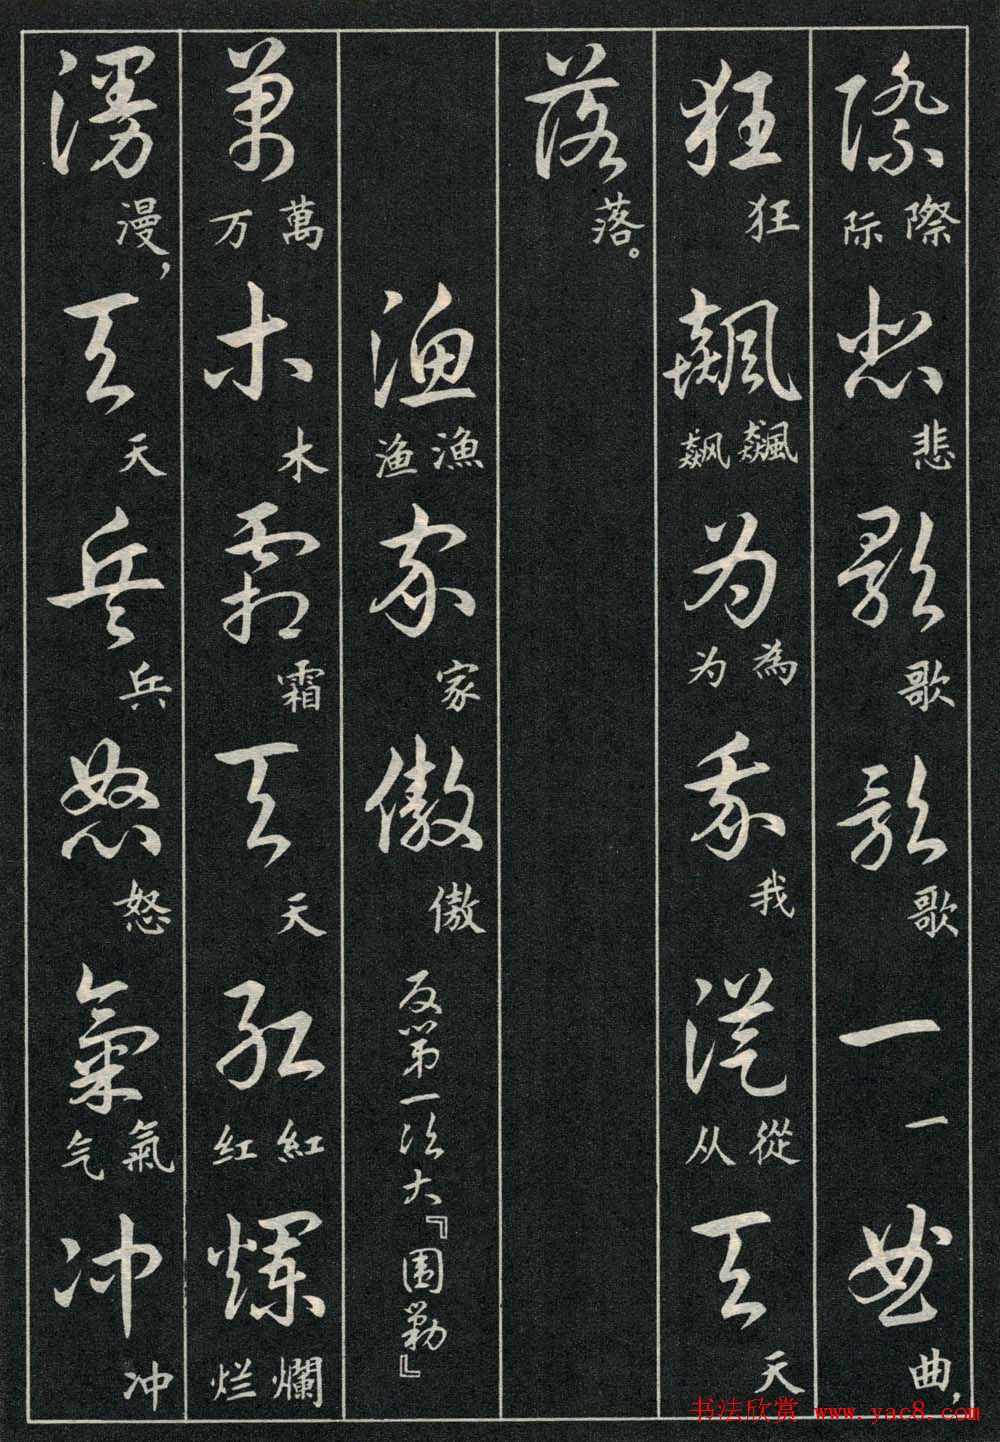 際悲歌歌一曲
際际悲歌歌一曲，
狂飆为我從天
狂飆飙為为我從从天
落
落。
漁家傲 反第一次大『围剿』
漁渔家傲
萬木霜天紅爛
萬万木霜天紅红爛烂
漫天兵怒氣冲
漫，天兵怒氣气冲
书法欣赏 www.yac8.com